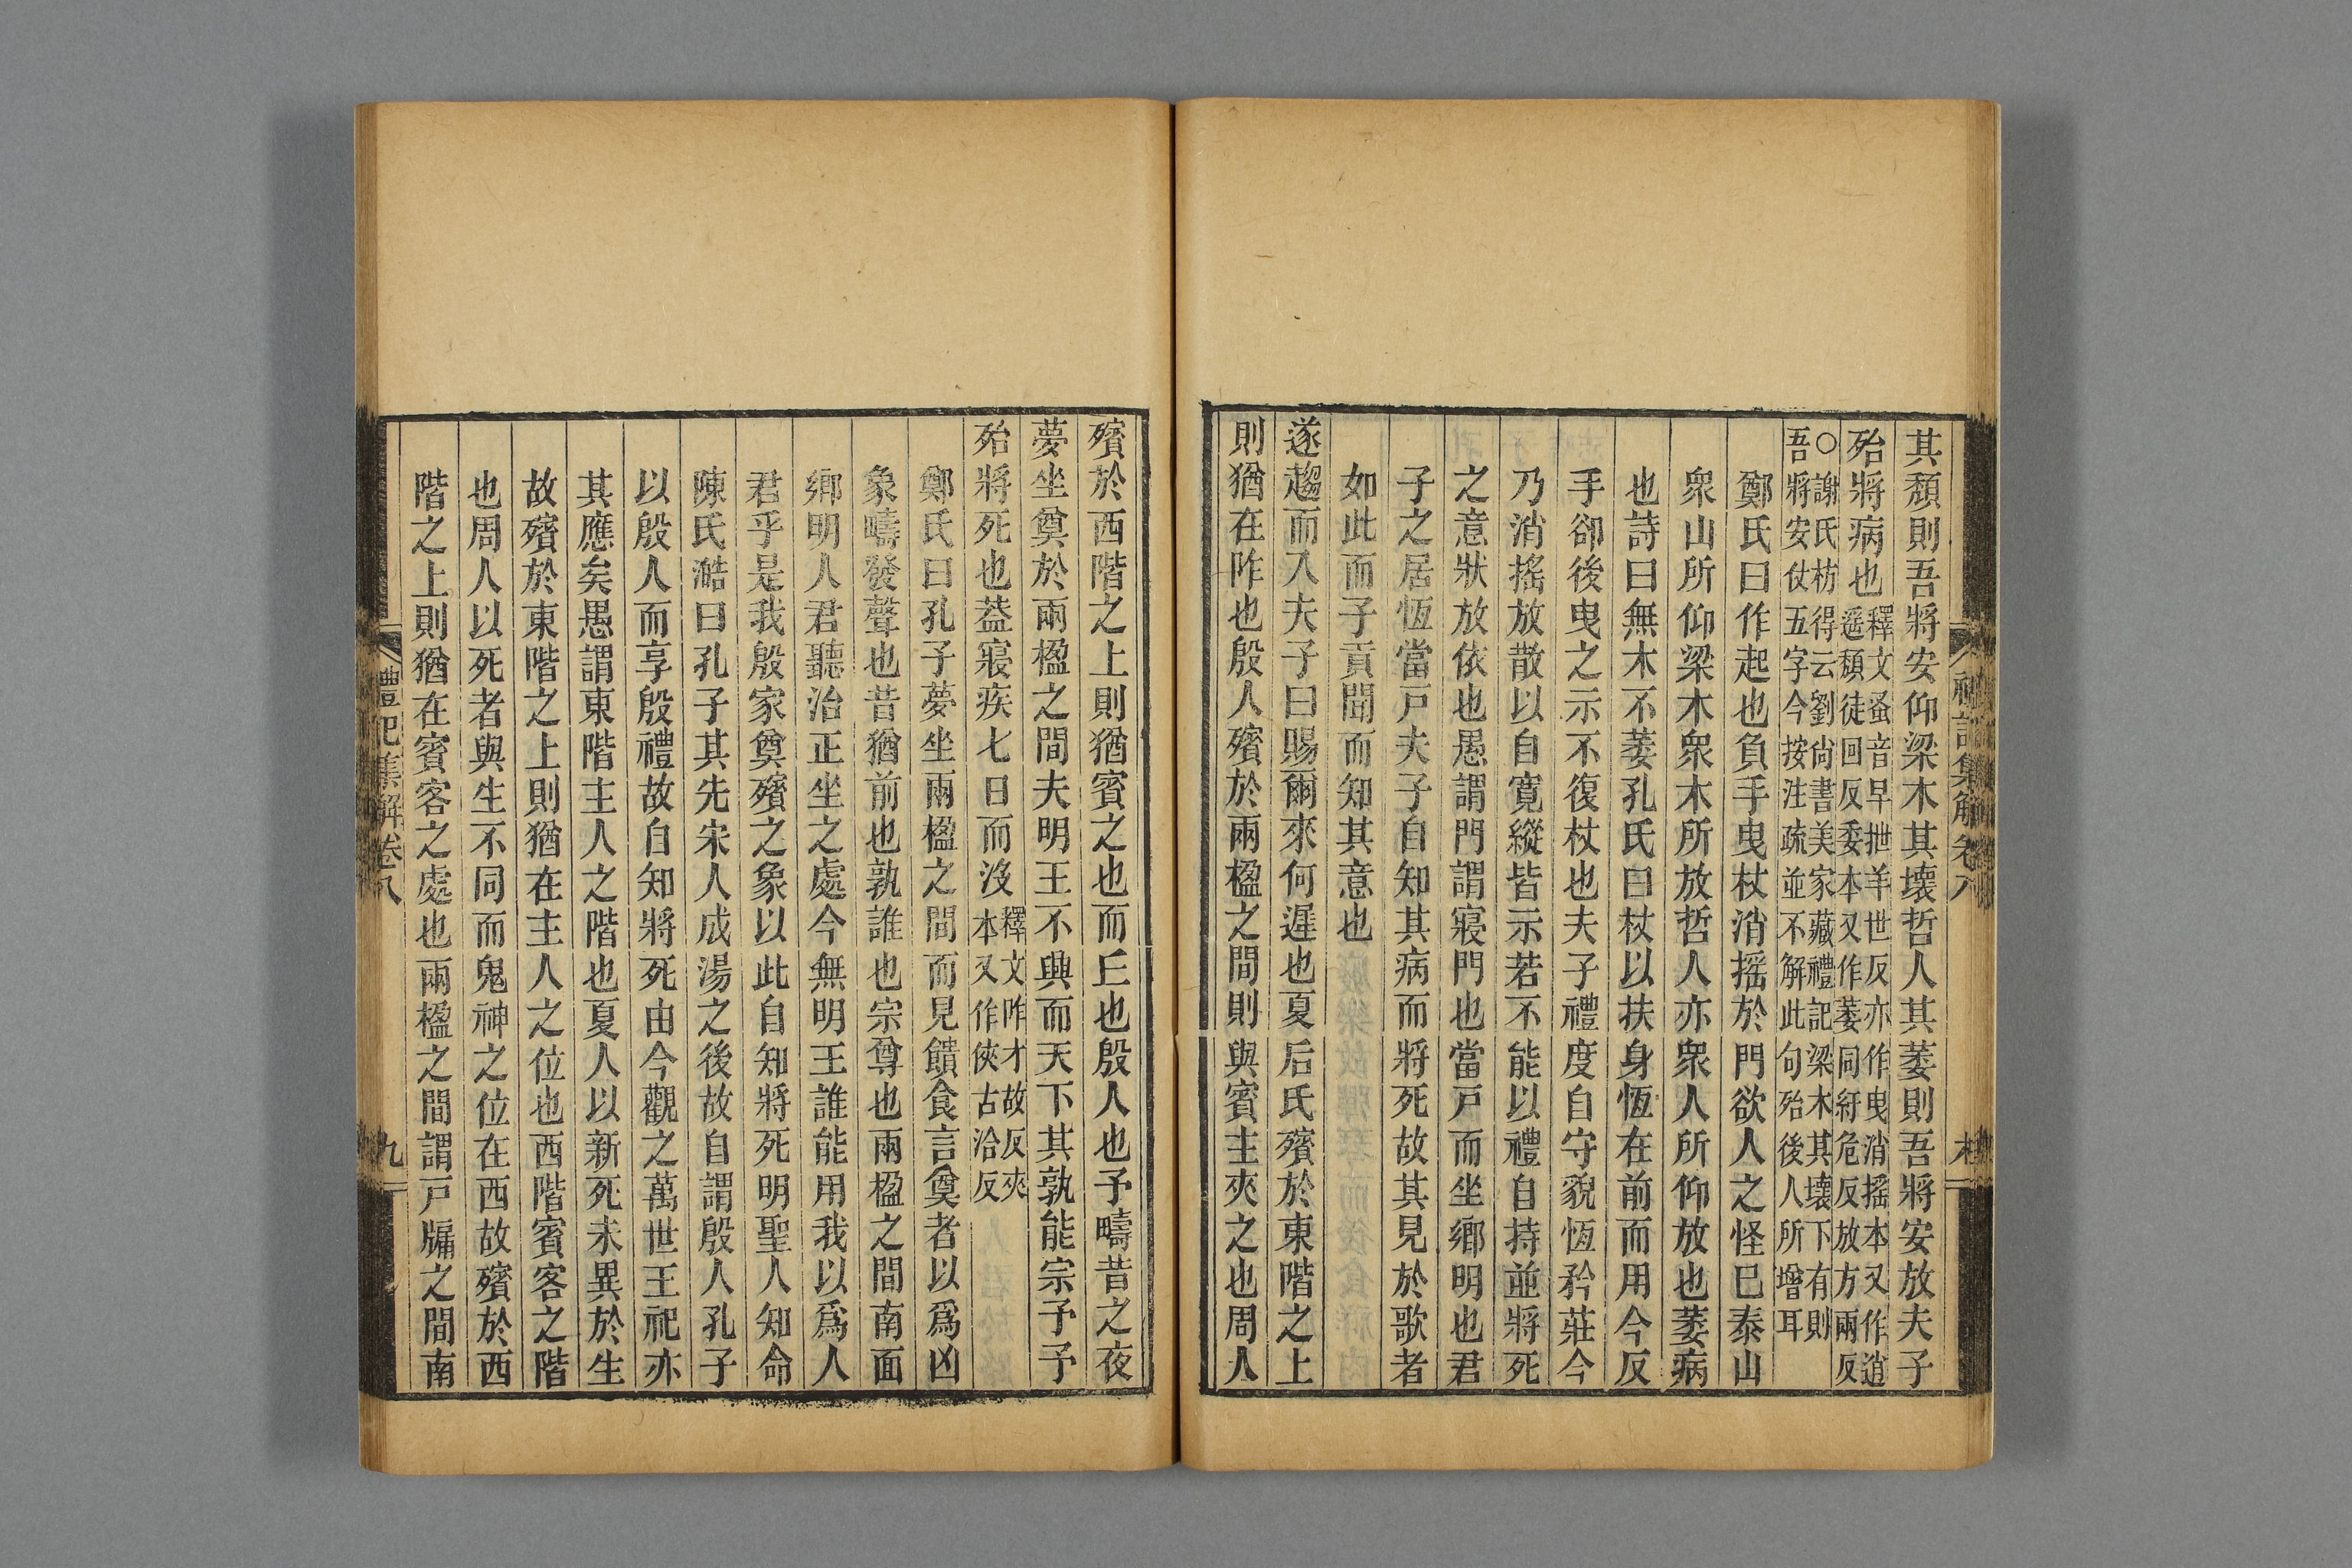 其頹則吾將安仰梁木其壞哲人其萎則吾將安放夫子
殆將病也釋文蚤音早抴羊世反亦作曳消搖本又作逍
遥頹徒回反委本又作萎同紆危反放方兩反
○謝氏枋得云劉尚書美家藏禮記梁木其壞下有則
吾將安仗五字今按注疏並不解此句殆後人所增耳
鄭氏曰作起也負手曳杖消搖於門欲人之怪已泰山
衆山所仰梁木衆木所放哲人亦衆人所仰放也萎病
也詩曰無木不萎孔氏曰杖以扶身恆在前而用今反
手卻後曳之示不復杖也夫子禮度自守貌恆矜莊今
乃消搖放散以自寬縱皆示若不能以禮自持並將死
之意狀放依也愚謂門謂寢門也當戸而坐鄉明也君
子之居恆當戸夫子自知其病而將死故其見於歌者
如此而子貢聞而知其意也
遂趨而入夫子曰賜爾來何遲也夏后氏殯於東階之上
則猶在阼也殷人殯於兩楹之間則與賓主夾之也周人
禮記集解卷八
殯於西階之上則猶賓之也而丘也殷人也予疇昔之夜
夢坐奠於兩楹之間夫明王不興而天下其孰能宗予予
殆將死也葢寢疾七日而沒釋文阼才故反夾
本又作俠古洽反
鄭氏曰孔子夢坐兩楹之間而見饋食言奠者以爲凶
象疇發聲也昔猶前也孰誰也宗尊也兩楹之間南面
鄉明人君聽治正坐之處今無明王誰能用我以爲人
君乎是我殷家奠殯之象以此自知將死明聖人知命
陳氏澔曰孔子其先宋人成湯之後故自謂殷人孔子
以殷人而享殷禮故自知將死由今觀之萬世王祀亦
其應矣愚謂東階主人之階也夏人以新死未異於生
故殯於東階之上則猶在主人之位也西階賓客之階
也周人以死者與生不同而鬼神之位在西故殯於西
階之上則猶在賓客之處也兩楹之間謂戸牖之間南
禮記集解卷八
九